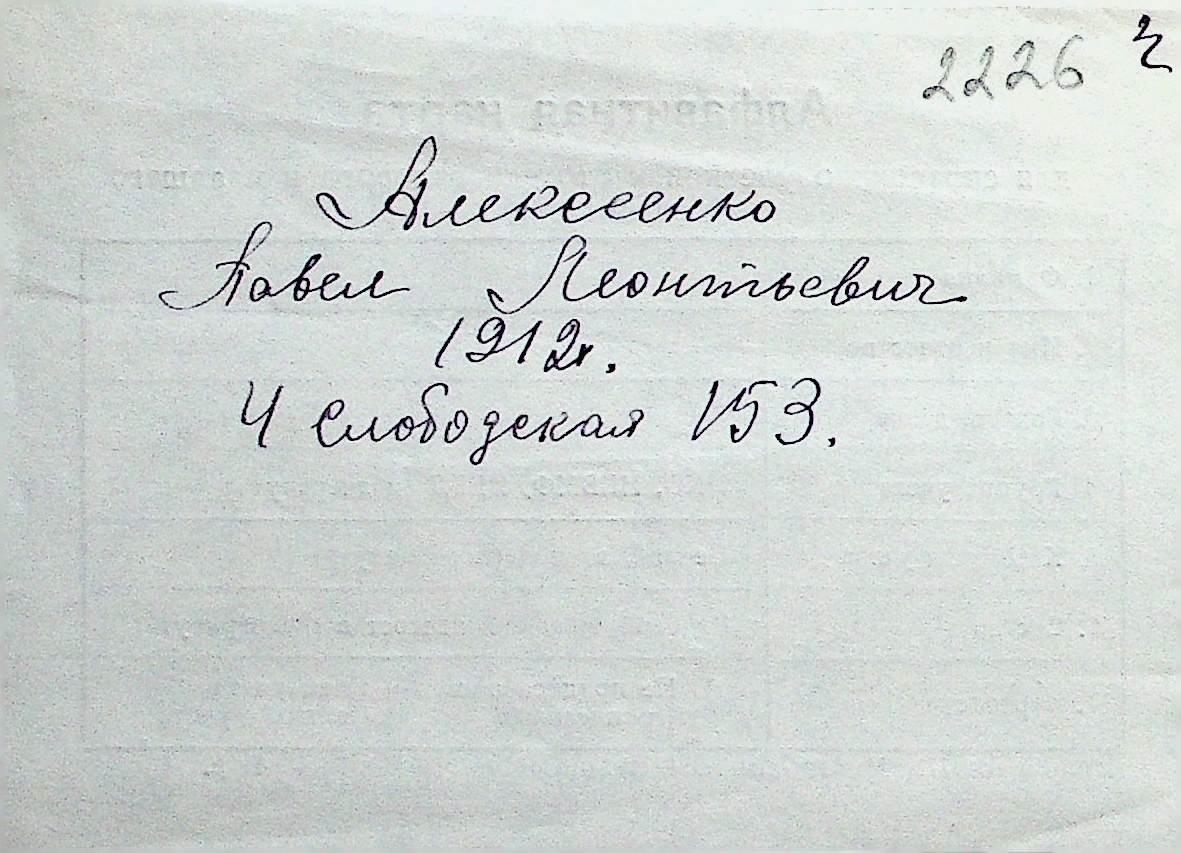 2226
Алексеенко
Павел Леонтьевич
1912г.
4 Слободская 153.